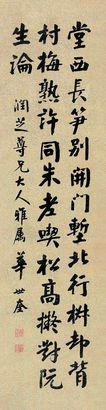 堂西長笋別開門塹北行椒却背
村梅熟許同朱老喫松高擬對阮
生論 潤芝尊兄大人雅屬 華世奎